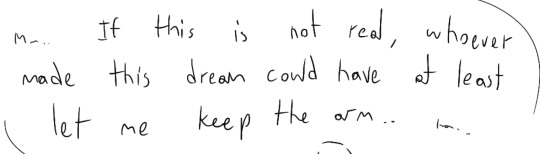 m... If this is not real, whoever
made this dream could have at least
let me keep the arm..